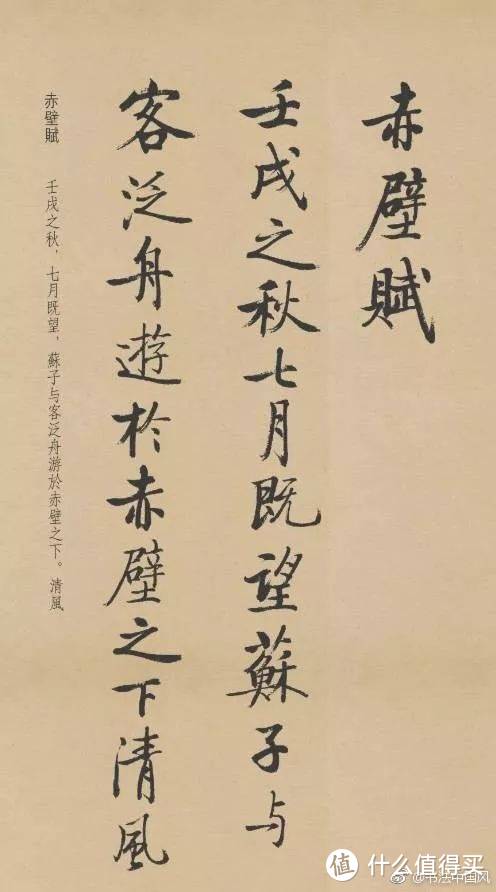 赤壁賦
壬戌之秋七月既望蘇子与
客泛舟遊於赤壁之下清風
赤壁賦 壬戌之秋，七月既望，蘇子与客泛舟游於赤壁之下。清風
@书法中国风
值 什么值得买